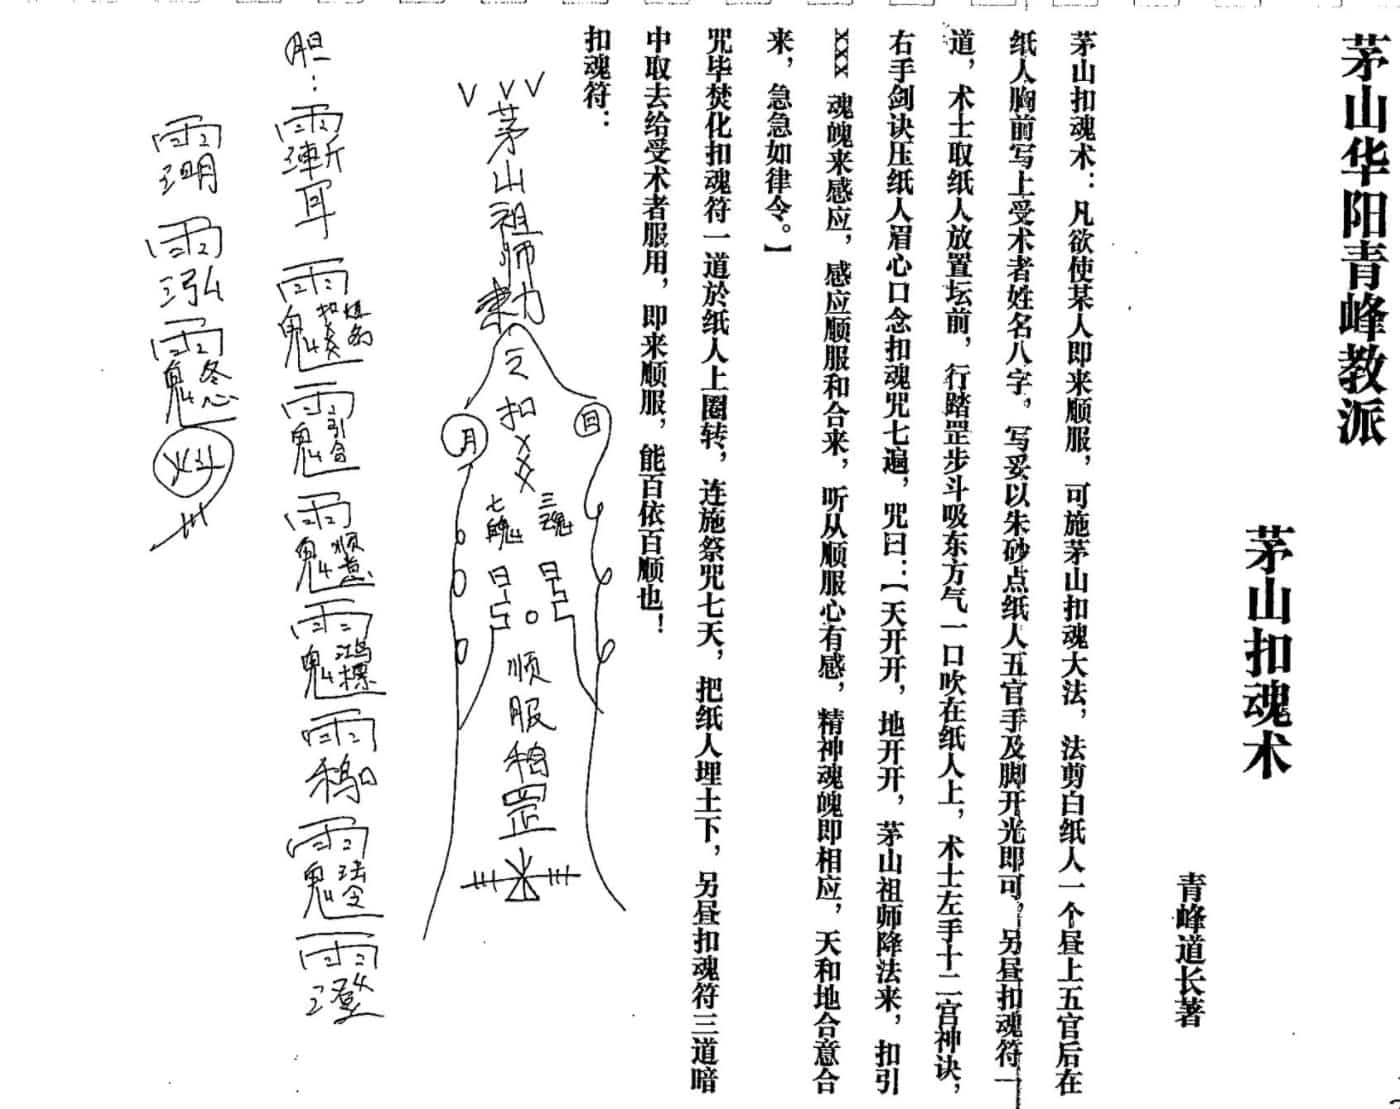 茅山华阳青峰教派
茅山扣魂术
青峰道长著
茅山扣魂术：凡欲使某人即来顺服，可施茅山扣魂大法，法剪白纸人一个昼上五官后在
纸人胸前写上受术者姓名八字。写妥以朱砂点纸人五官手及脚开光即可，另昼扣魂符一
道，术士取纸人放置坛前，行踏罡步斗吸东方气一口吹在纸人上，术士左手十二宫神诀，
右手剑诀压纸人眉心口念扣魂咒七遍，咒曰：【天开开，地开开，茅山祖师降法来，扣引
XXX 魂魄来感应，感应顺服和合来，听从顺服心有感，精神魂魄即相应，天和地合意合
来，急急如律令。】
咒毕焚化扣魂符一道於纸人上圈转，连施祭咒七天，把纸人埋土下，另昼扣魂符三道暗
中取去给受术者服用，即来顺服，能百依百顺也！
扣魂符：
茅山祖师勅
扣XXX
三魂
七魄
月
顺服
罡
胆：